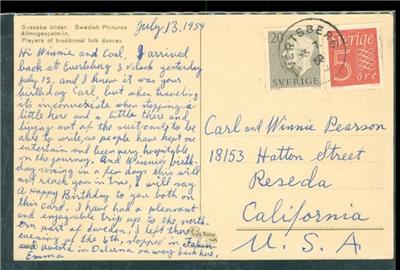 Svenska bilder. Swedish Pictures
Allmogespelmän.
Players of traditional folk dances
July 13, 1959
Hi Winnie and Carl, I arrived
back at Evertsberg 3 o'clock yesterday
July 12, and I knew it was your
birthday Carl, but when traveling
its inconvenient when stopping a
little here and a little there and
living out of the suitcase to be
able to write, so people have kept me
entertain and been very hospitable
on the journey. And Winnie's birth-
day coming in a few days this will
not reach you in time, I will say
A Happy Birthday to you both on
this card. I have had a pleasant
and enjoyable trip up to the north-
ern part of Sweden. I left there
evening of the 6th, stopped in
and in Dalarna on way back here.
Emma
20
SVERIGE
EVERTSBERG
Sverige
5
öre
Carl and Winnie Pearson
18153 Hatton Street
Reseda
California
U. S. A